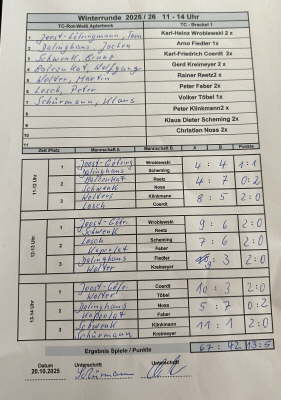 Winterrunde 2025 / 26 11 - 14 Uhr
TC-Rot-Weiß Aplerbeck TC - Brackel 1
1 Joost-Göringmann, Tom Karl-Heinz Wroblewski 2 x
2 Dalinghaus, Jochen Arno Fiedler 1x
3 Schwenk, Bruno Karl-Friedrich Coerdt 2x
4 Wolfgang Gerd Kreimeyer 2 x
5 Wolter, Martin Rainer Reetz2 x
6 Losch, Peter Peter Faber 2x
7 Schürmann, Klaus Volker Töbel 1x
8 Peter Klinkmann2 x
9 Klaus Dieter Scheming 2x
10 Christian Noss 2x
11
Zeit Platz Mannschaft A Mannschaft B A B Punkte
11-12 Uhr
1 Wroblewski 4 : 4 1:1
Dalinghaus Scheming
2 Reetz 4 : 7 0:2
Schwenk Noss
3 Wolters Klinkmann 8 : 5 2:0
Losch Coerdt
12-13 Uhr
1 Wroblewski 9 : 6 2:0
Schwenk Reetz
2 Losch Scheming 7 : 6 2:0
Faber
3 Dalinghaus Fiedler 3 2:0
Wolter Kreimeyer
13-14 Uhr
1 Coerdt 10 : 3 2:0
Wolter Töbel
2 Dalinghaus Noss 5 : 7 0:2
Faber
3 Schwenk Klinkmann 11 : 1 2:0
Schürmann Kreimeyer
Ergebnis Spiele / Punkte 67 : 42 13:5
Datum Unterschrift Unterschrift
20.10.2025 Schürmann